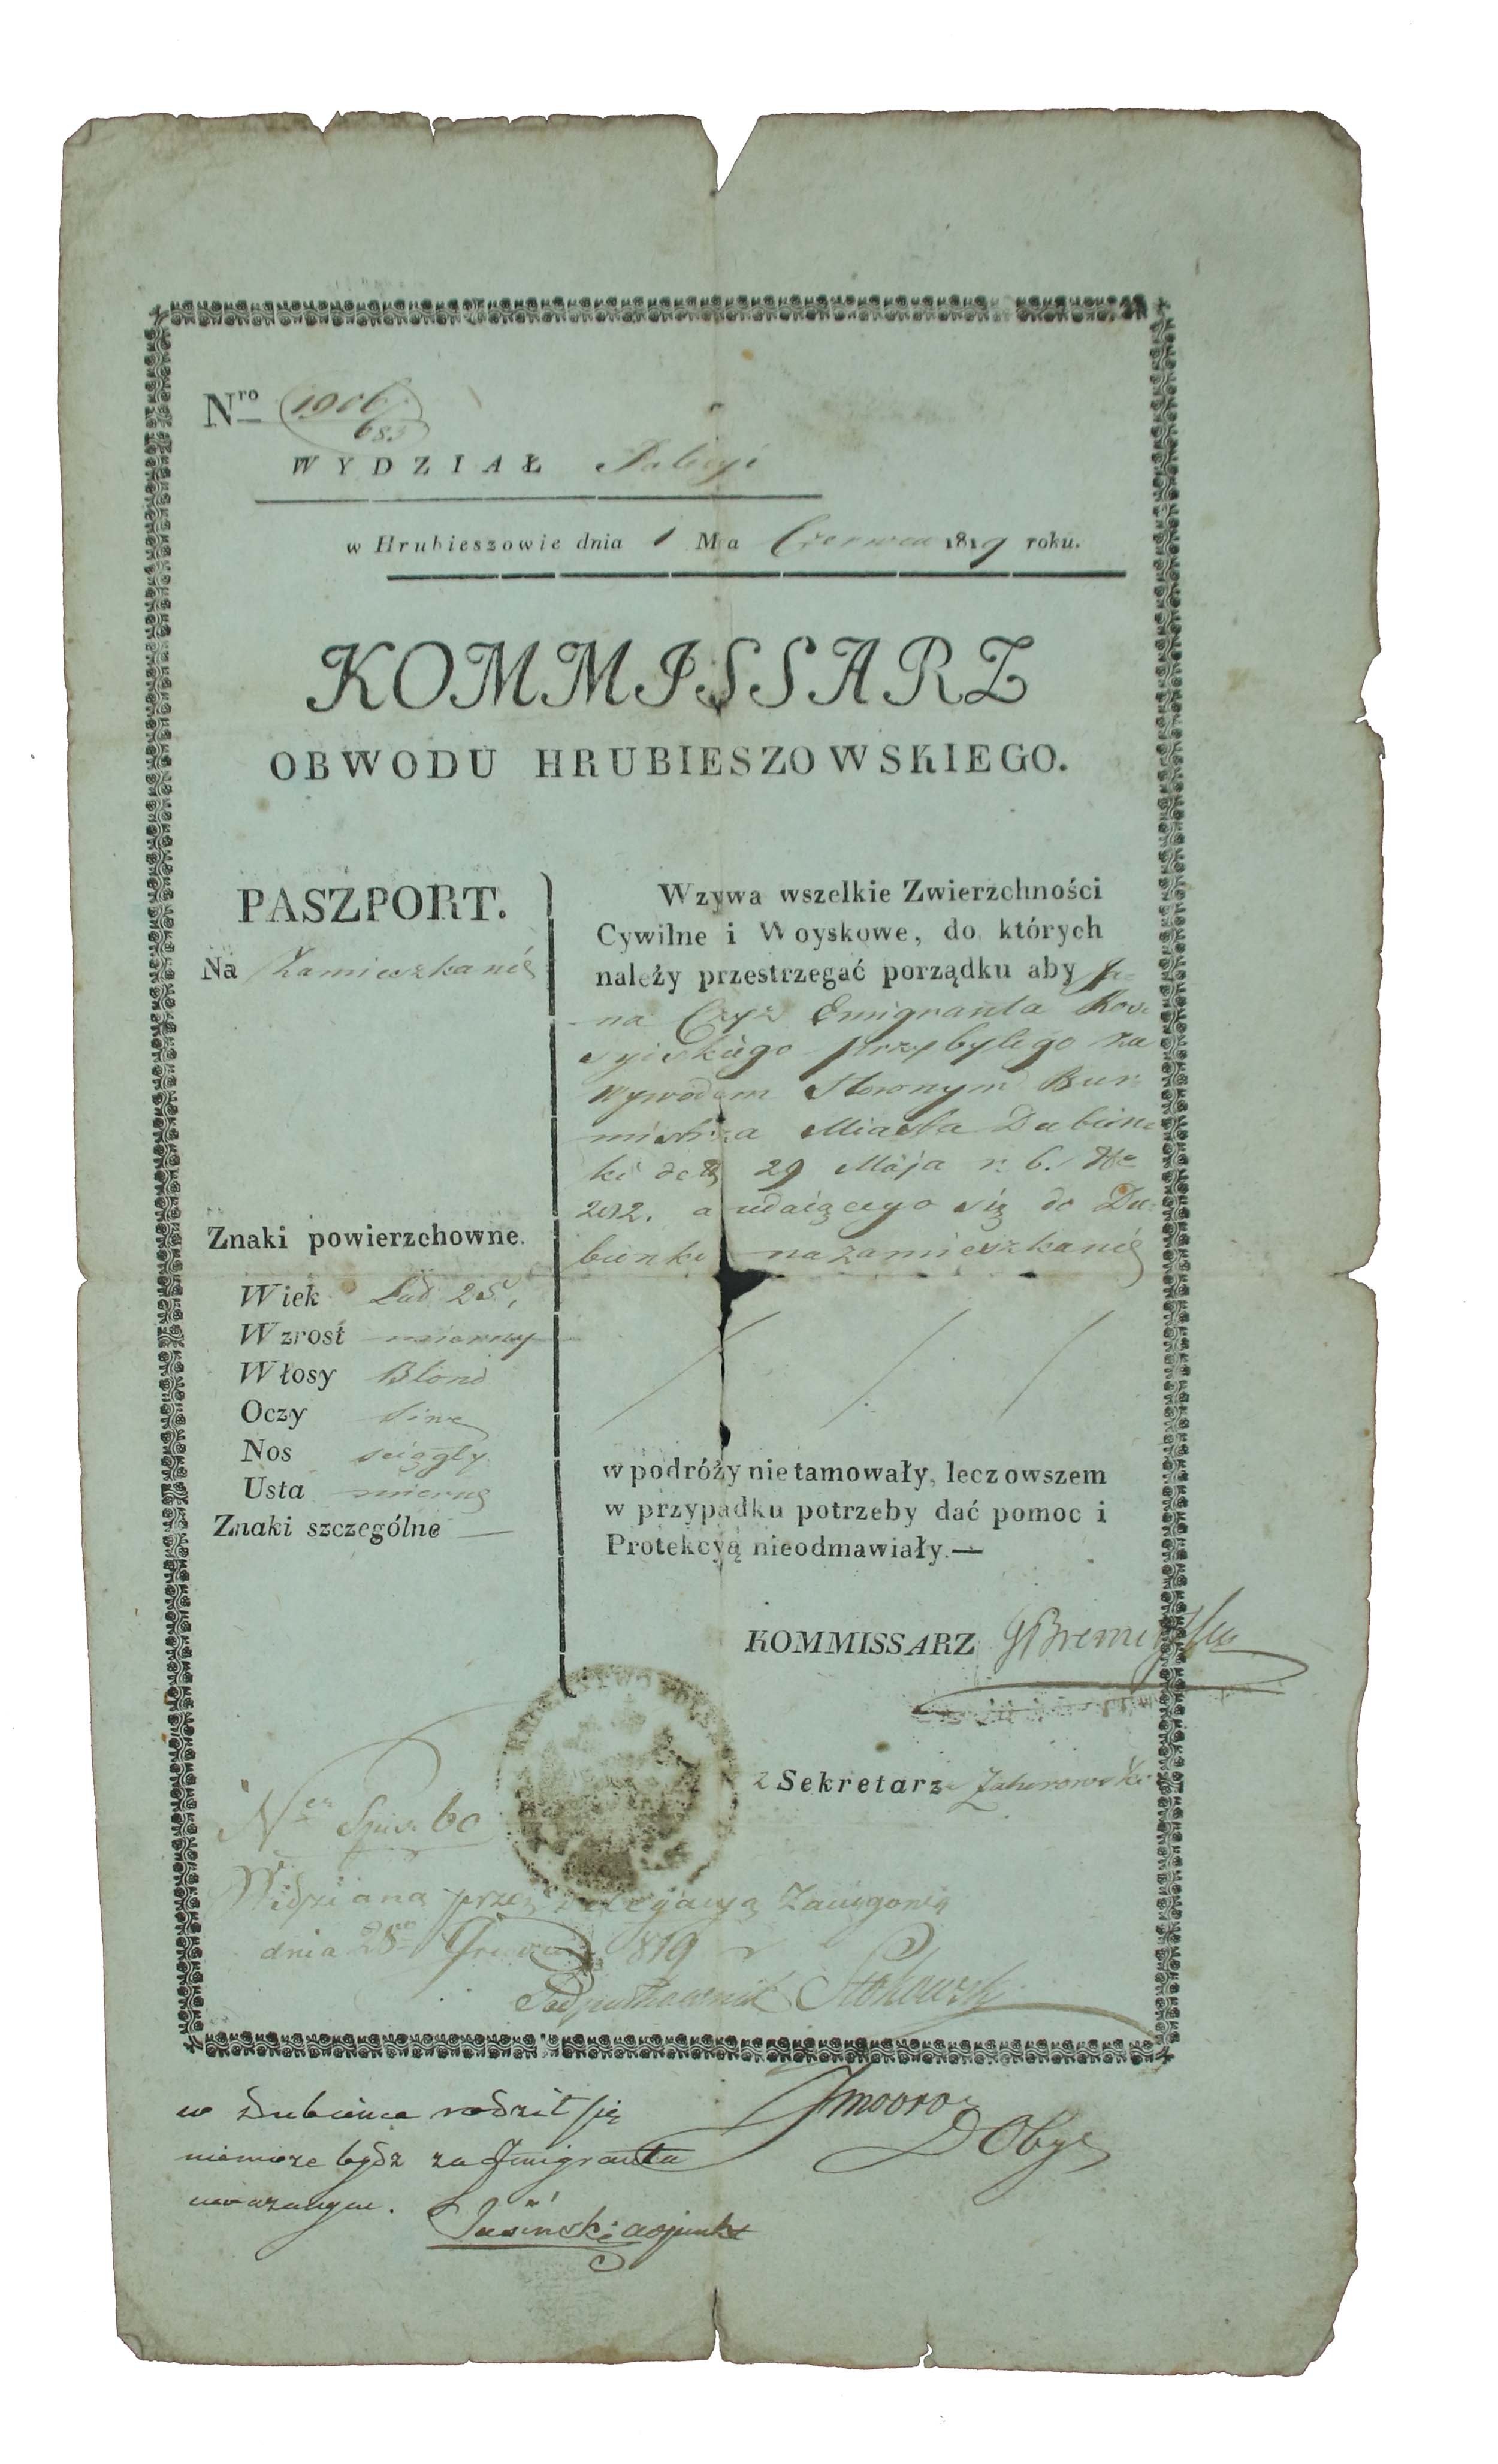 Nro 1906/683
WYDZIAŁ Policyi
w Hrubieszowie dnia 1 Ma Czerwca 1819 roku.
KOMMISSARZ
OBWODU HRUBIESZOWSKIEGO.
PASZPORT.
Na Zamieszkanie
Znaki powierzchowne.
Wiek Lad 25,
Wzrost mierny
Włosy Blond
Oczy siwe
Nos sciągły
Usta mierne
Znaki szczególne —
Wzywa wszelkie Zwierzchności
Cywilne i Woyskowe, do których
należy przestrzegać porządku aby
na Czyż Emigranta Ros
syiskiego przybyłego za
wywodem Słownym Bur
mistrza Miasta Dubien
ki 29 Maja r. b. No
202. a udaiącego się do Du
bienki na zamieszkanie
w podróży nie tamowały, lecz owszem
w przypadku potrzeby dać pomoc i
Protekcyą nieodmawiały.—
KOMMISSARZ
2 Sekretarz
Nro Spisu 60
Widziana przez delegacyą Zaciągową
dnia 28 1819 r
Podpułkownik
w Dubience rodził się
niemoże bydz za Emigranta
uwazanym.
Jasinski adjunkt